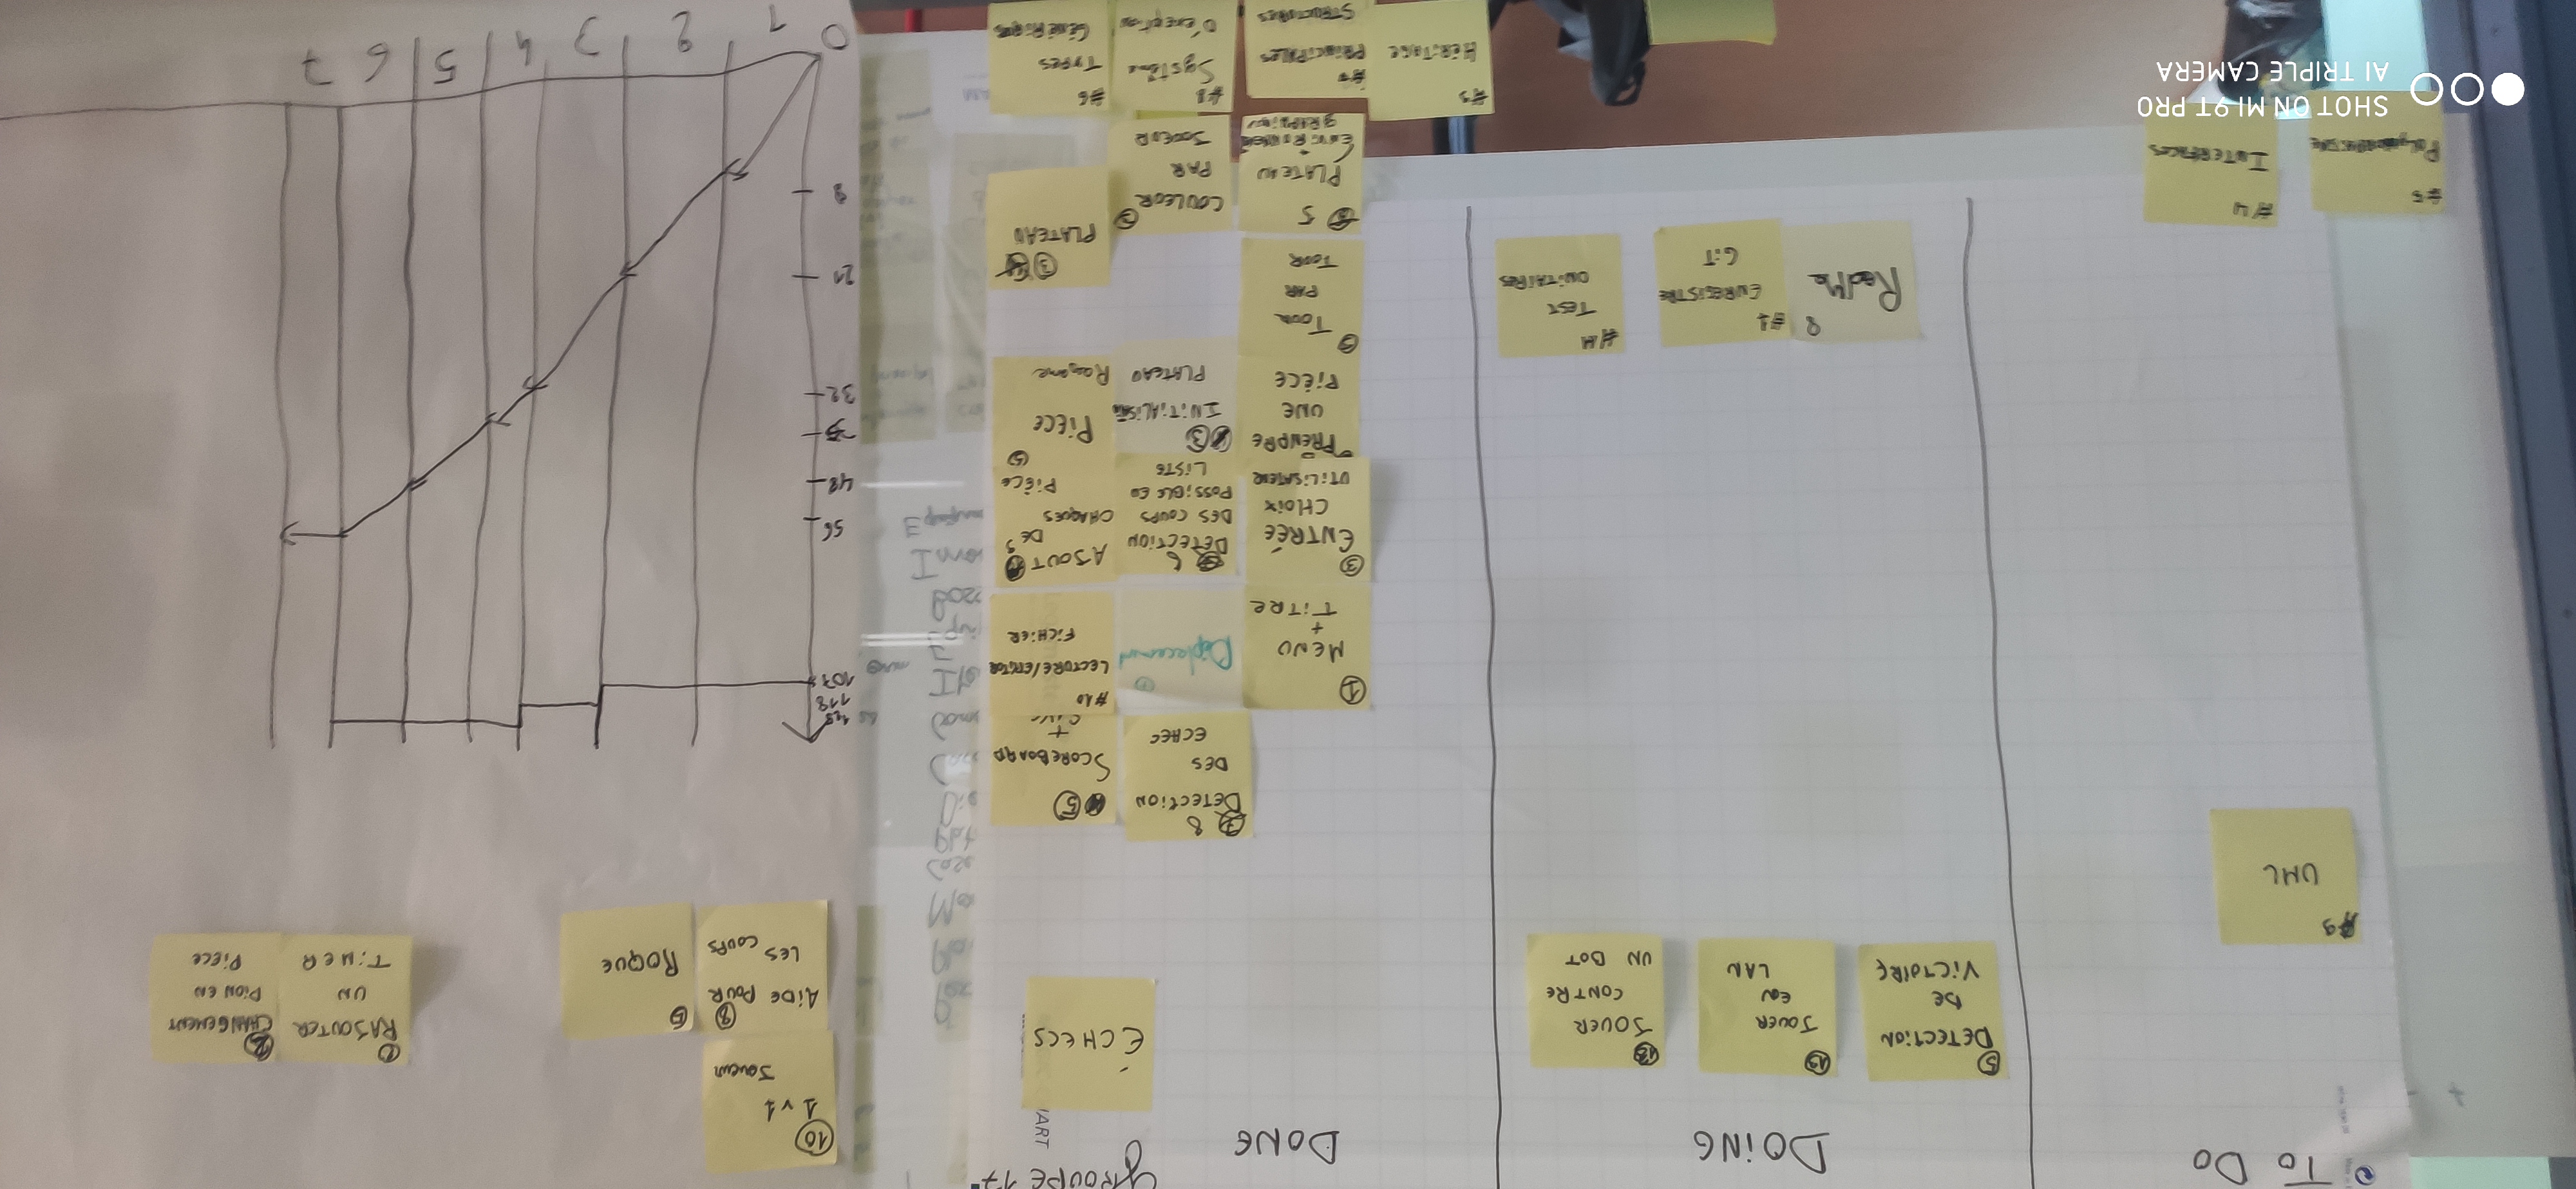 TO DO
DOING
DONE
GROUPE 17
#9
UML
#5
#4
INTERFACES
5
DETECTION
DE
VICTOIRE
JOUER
EN
LAN
JOUER
CONTRE
UN BOT
8
#1
ENREGISTRE
GIT
#11
TEST
UNITAIRES
ÉCHECS
8
DETECTION
DES
ECHEC
5
SCOREBOARD
+
1
MENU
+
TITRE
Déplacement
#10
FICHIER
3
ENTRÉE
CHOIX
UTILISATEUR
6
DETECTION
DES COUPS
POSSIBLE EN
LISTE
AJOUT
DE
CHAQUES
PIÈCE
PRENDRE
UNE
PIÈCE
3
PLATEAU
5
PIECE
TOUR
PAR
TOUR
3
PLATEAU
5
PLATEAU
COULEUR
PAR
JOUEUR
#3
HÉRITAGE
PRINCIPALES
STRUCTURES
#8
Système
#6
TYPES
GÉNÉRIQUES
10
1 v 1
Joueur
8
AIDE POUR
LES COUPS
ROQUE
RAJOUTER
UN
TIMER
CHANGEMENT
PION EN
PIECE
118
107
56
48
32
21
8
0
1 2 3 4 5 6 7
SHOT ON MI 9T PRO
AI TRIPLE CAMERA